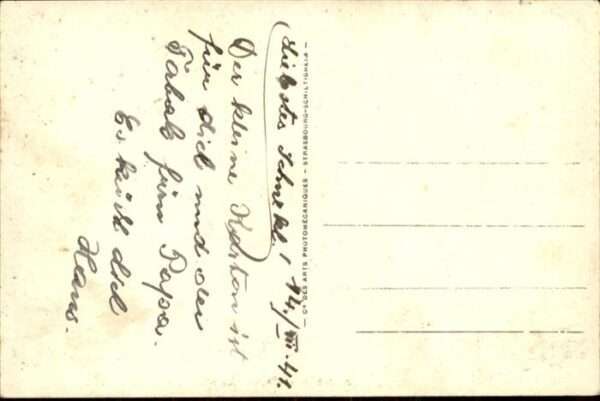 Liebstes Schneckl! 14./VII.41.
Der kleine Karton ist
für dich und der
Tabak fürn Papa.
Es küßt dich
Hans.
Cie DES ARTS PHOTOMÉCANIQUES - STRASBOURG-SCHILTIGHEIM -